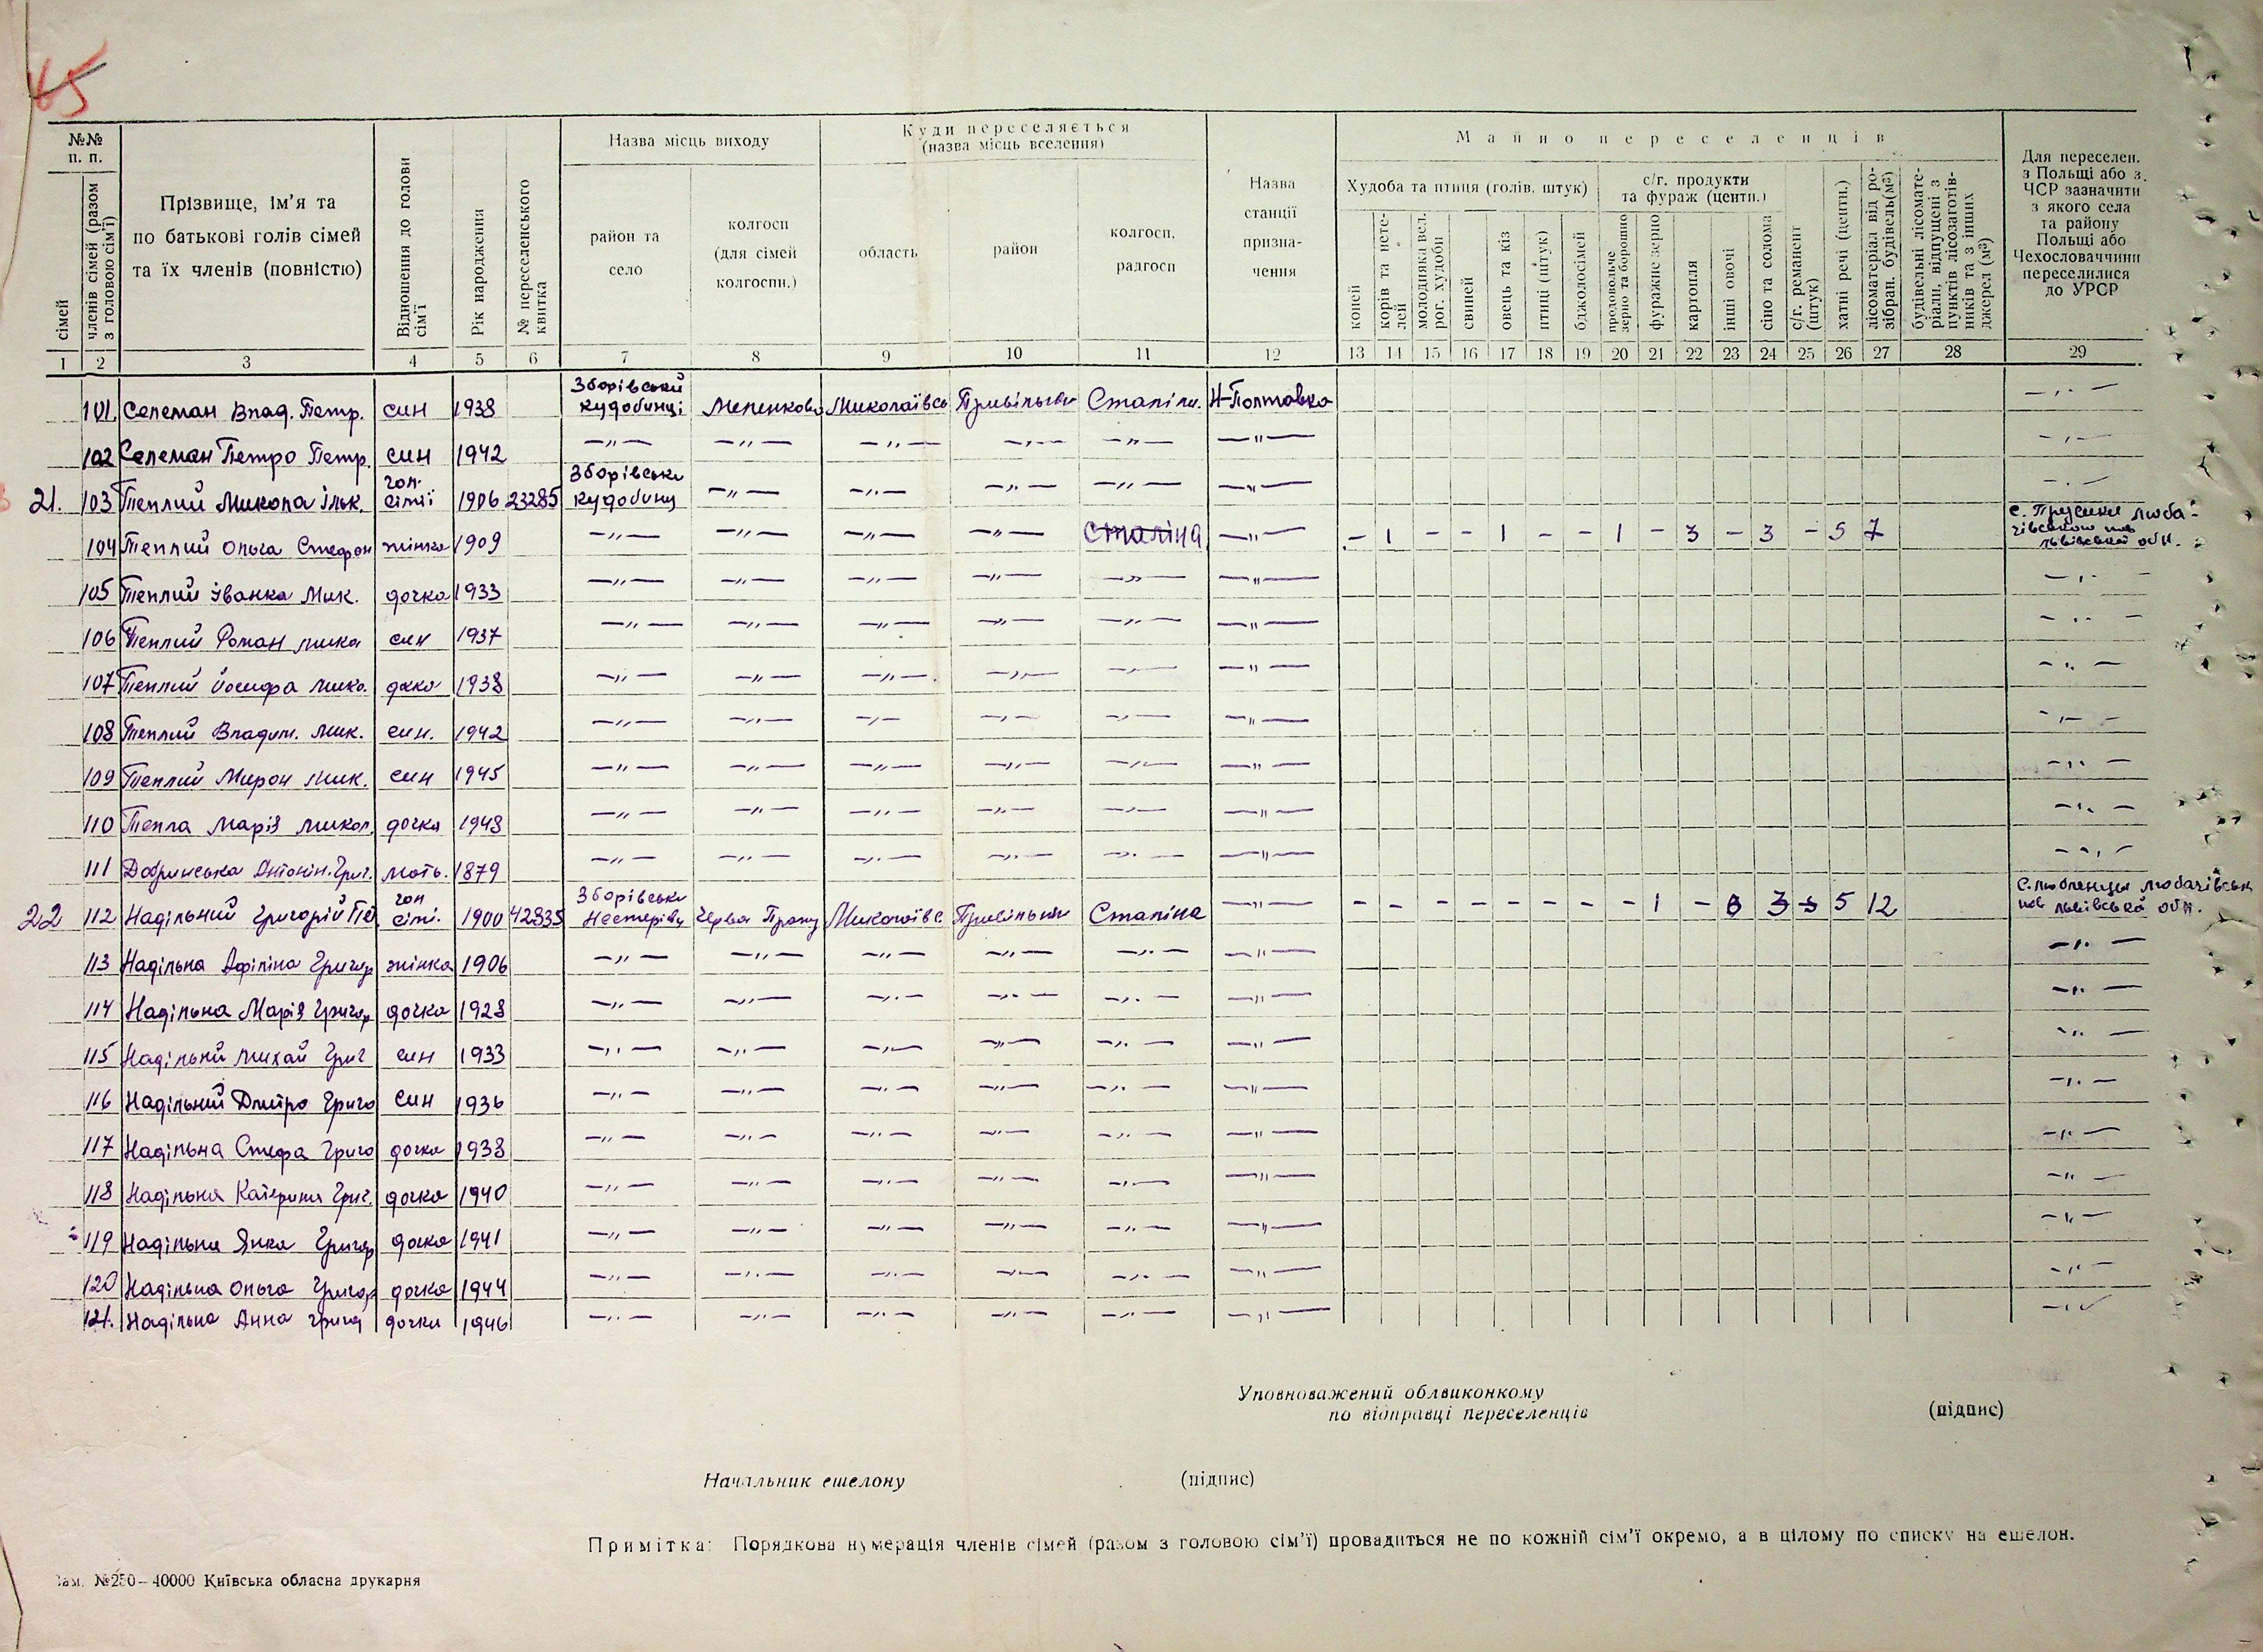 65
№№
п. п.
сімей
членів сімей (разом з головою сім'ї)
Прізвище, ім'я та
по батькові голів сімей
та їх членів (повністю)
Відношення до голови сім'ї
Рік народження
№ переселенського квитка
Назва місць виходу
район та
село
колгосп
(для сімей
колгоспн.)
Куди переселяється
(назва місць вселення)
область
район
колгосп,
радгосп
Назва
станції
призна-
чення
Майно переселенців
Худоба та птиця (голів, штук)
коней
корів та нете-
лей
молодняка вел.
рог. худоби
свиней
овець та кіз
птиці (штук)
бджолосімей
с/г. продукти
та фураж (центн.)
продовольче
зерно та борошно
фуражне зерно
картопля
інші овочі
сіно та солома
с/г. реманент
(штук)
хатні речі (центн.)
лісоматеріал від ро-
зібран. будівель (м³)
будівельні лісомате-
ріали, відпущені з
пунктів лісозаготів-
ників та з інших
джерел (м³)
Для переселен.
з Польщі або з
ЧСР зазначити
з якого села
та району
Польщі або
Чехословаччини
переселилися
до УРСР
1 2 3 4 5 6 7 8 9 10 11 12 13 14 15 16 17 18 19 20 21 22 23 24 25 26 27 28 29
101 Селеман Влад. Петр. син 1938 Зборівський кудобинці Миколаївсь Сталін. Н-Полтавка —„—
102 Селеман Петро Петр. син 1942 —„— —„— —„— —„— —„— —„— —„—
21. 103 Теплий Микола Ільк. гол. сімї 1906 23285 Зборівськи кудобинц —„— —„— —„— —„— —„— —„—
104 Теплий Ольга Стефан жінка 1909 —„— —„— —„— —„— Сталіна —„— - 1 - - 1 - - 1 - 3 - 3 - 5 7 с. Львівської обл.
105 Теплий Іванка Мик. дочка 1933 —„— —„— —„— —„— —„— —„— —„—
106 Теплий Роман мика син 1937 —„— —„— —„— —„— —„— —„— —„—
107 Теплий Йосифа мико. дочка 1938 —„— —„— —„— —„— —„— —„— —„—
108 Теплий Владим. мик. син. 1942 —„— —„— —„— —„— —„— —„— —„—
109 Теплий Мирон мик. син 1945 —„— —„— —„— —„— —„— —„— —„—
110 Тепла Марія микол. дочка 1948 —„— —„— —„— —„— —„— —„— —„—
111 Добринська Антонін. Григ. мать. 1879 —„— —„— —„— —„— —„— —„— —„—
22 112 Надільний Григорій Пе гол сімі. 1900 42835 Зборівськи Нестерівц Червон Прапор Миколаївс Сталіна —„— - - - - - - - - 1 - 3 5 12 с. любачівськ пов львівської обл.
113 Надільна Афіліна Григор жінка 1906 —„— —„— —„— —„— —„— —„— —„—
114 Надільна Марія Григор дочка 1928 —„— —„— —„— —„— —„— —„— —„—
115 Надільний михай Григ син 1933 —„— —„— —„— —„— —„— —„— —„—
116 Надільний Дмитро Григо син 1936 —„— —„— —„— —„— —„— —„— —„—
117 Надільна Стефа Григо дочка 1938 —„— —„— —„— —„— —„— —„— —„—
118 Надільна Катерина Григ. дочка 1940 —„— —„— —„— —„— —„— —„— —„—
119 Надільна Янка Григор дочка 1941 —„— —„— —„— —„— —„— —„— —„—
120 Надільна Ольга Григор дочка 1944 —„— —„— —„— —„— —„— —„— —„—
121. Надільна Анна григ дочка 1946 —„— —„— —„— —„— —„— —„— —„—
Уповноважений облвиконкому
по відправці переселенців
(підпис)
Начальник ешелону
(підпис)
Примітка: Порядкова нумерація членів сімей (разом з головою сім'ї) провадиться не по кожній сім'ї окремо, а в цілому по списку на ешелон.
Зам. №250—40000 Київська обласна друкарня